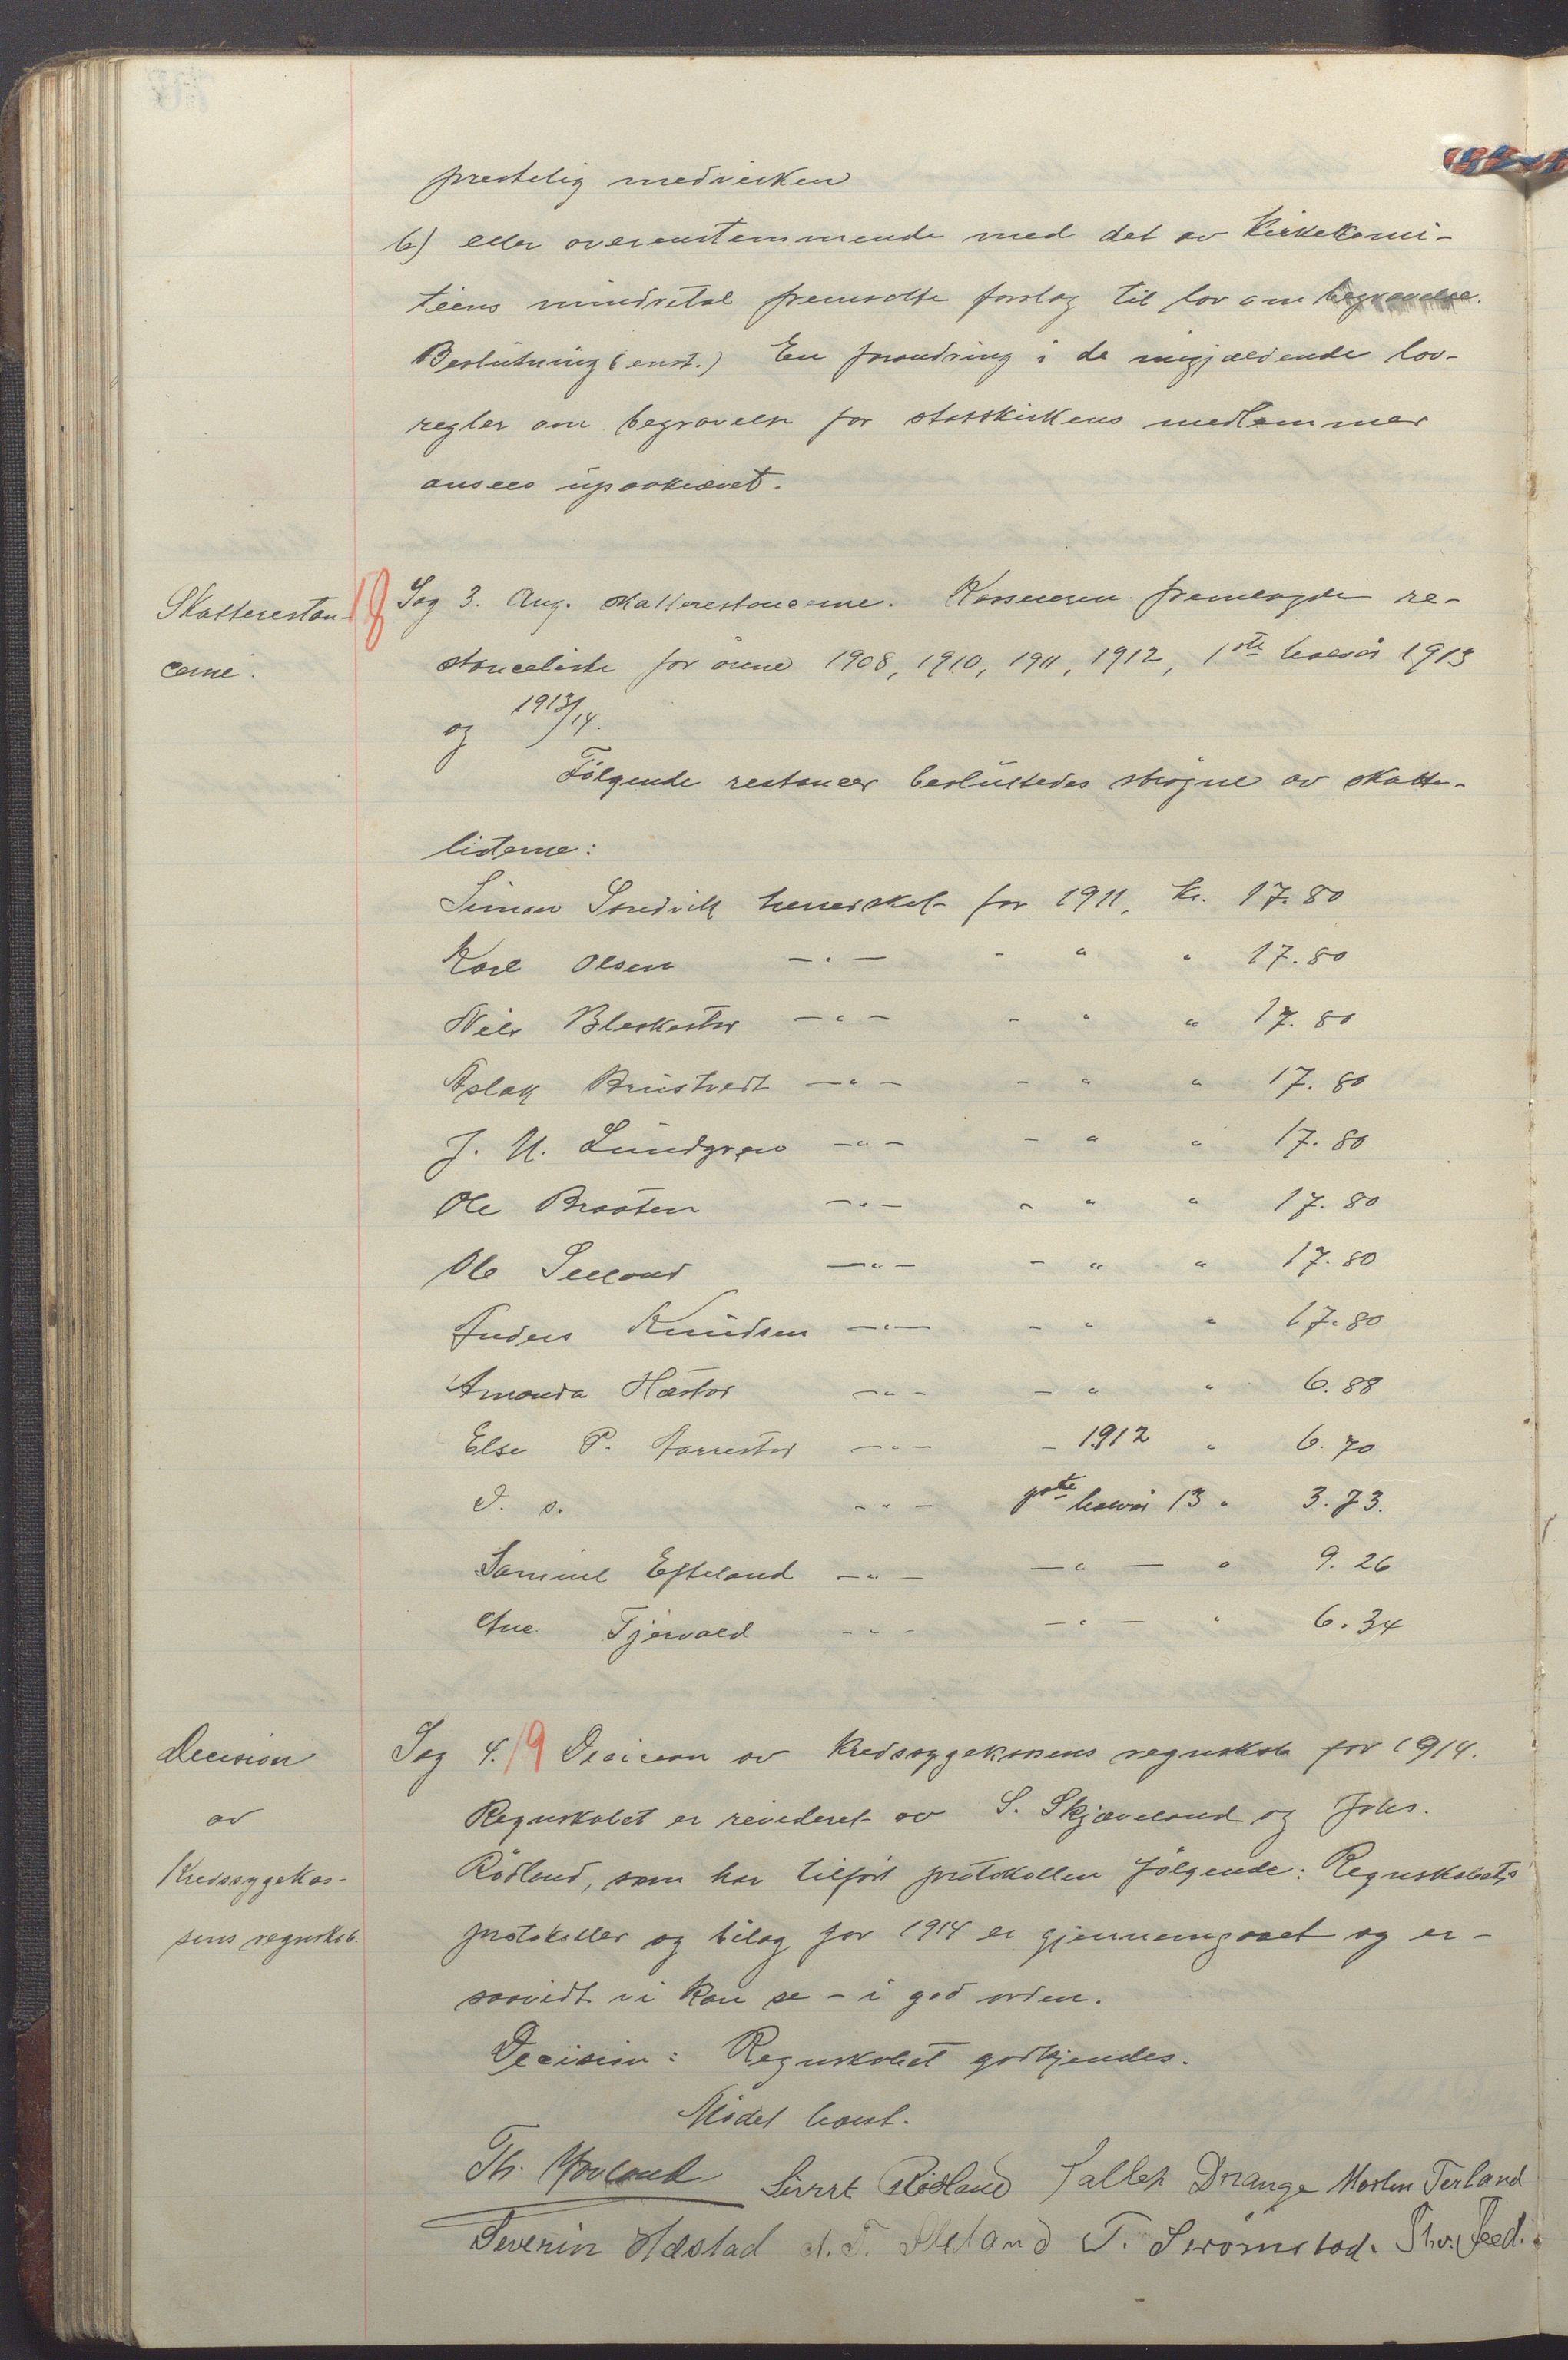 prestelig medvirken
b) eller overenstemmende med det av Kirkekomi-
teens mindretal fremsatte forslag til lov om begravelse.
Beslutning (enst.) En forandring i de nugjældende lov-
regler om begravelse for statskirkens medlemmer
ansees upaakrævet.
Skatterestan-
cerne.
18
Sag 3. Ang. skatterestancerne. Kassereren fremlagde re-
stanceliste for årene 1908, 1910, 1911, 1912, 1ste halvår 1913
og 1913/14.
Følgende restancer besluttedes strøgne av skatte-
listerne:
Simon Sandvik herredskat for 1911, kr. 17.80
Karl Olsen —"— - " " 17.80
Nils Bleskestad —"— - " " 17.80
Aslak Brustvedt —"— - " " 17.80
J. U. Lundgren —"— - " " 17.80
Ole Braaten —"— - " " 17.80
Ole Selland —"— - " " 17.80
Anders Knudsen —"— - " " 17.80
Amanda Hæstad —"— - " " 6.88
Else P. Aarrestad —"— - 1912 " 6.70
D. s. —"— 1ste halvår 13 " 3.73.
Samuel Efteland —"— —"— " 9.26
Ane Tjørvald —"— —"— " 6.34
Decision
av
Kredssygekas-
sens regnskab.
Sag 4. 19 Decision av Kredssygekassens regnskab for 1914.
Regnskabet er revideret av S. Skjæveland og Johs.
Rödland, som har tilført protokollen følgende: Regnskabets
protokoller og bilag for 1914 er gjennemgaaet og er -
saavidt vi kan se - i god orden.
Decision: Regnskabet godkjendes.
Mødet hævet.
Th. Hovland Sivert Rödland Tallek Drange Morten Terland
Severin Hæstad T. Strömstad.